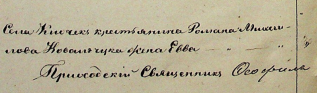 Села Кличек крестьянина Романа Михаи-
лова Ковальчука жена Евва — " — " —
Приходскій Священникъ Ѳеофилъ